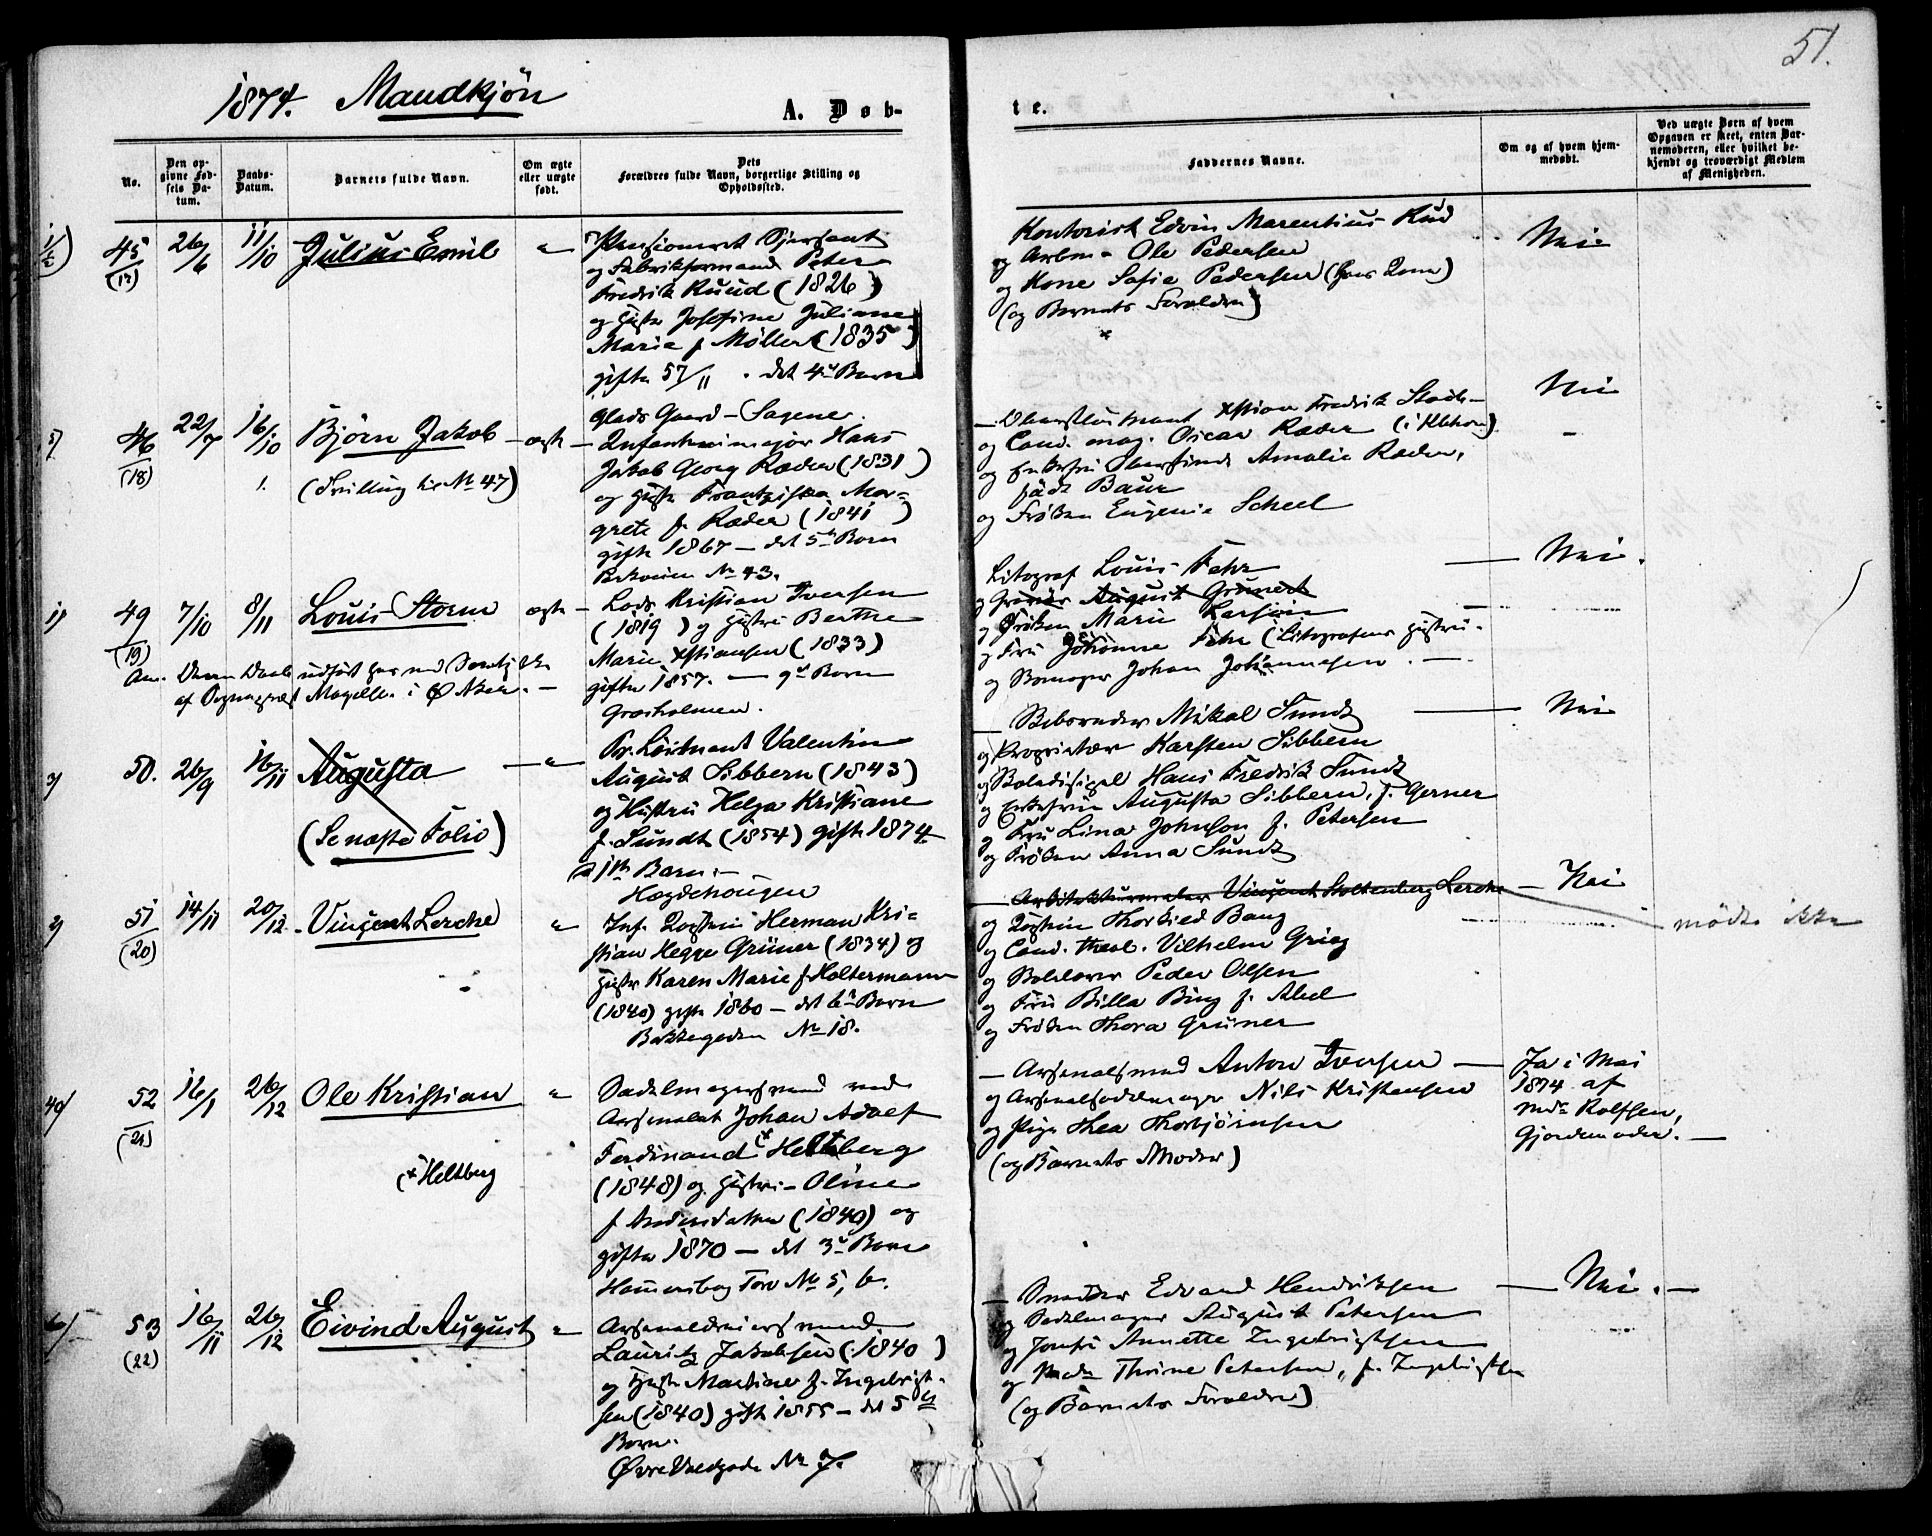 51.
1874. Mandkjøn
A. Døb-
te.
No.
Den op-
givne Fød-
sels Da-
tum.
Daabs-
Datum.
Barnets fulde Navn.
Om ægte
eller uægte
født.
Dets
Forældres fulde Navn, borgerlige Stilling og
Opholdssted.
Faddernes Navne.
Om og af hvem hjem-
medøbt.
Ved uægte Børn af hvem
Opgaven er skeet, enten Bar-
nemoderen, eller hvilket be-
kjendt og troværdigt Medlem
af Menigheden.
45
(17)
26/6
11/10
Julius Emil
Pensioneret Sjersant
og Fabrikformand Peter
Fredrik Ruud (1826)
og Hustr Josefine Juliane
Marie f Møller (1835)
gifte 57/11 . det 4de Barn
Glads Gaard – Sagene.
Kontorist Edvin Marentius Rud
og Arbm. Ole Pedersen
og Kone Sofie Pedersen
(og Barnets Forældre)
Nei
46
(18)
22/7
16/10
Bjørn Jakob
(Trilling hir No 47)
ægte
Infanterimajor Hans
Jakob Georg Ræder (1831)
og Hustr Frantziska Mar-
grete f. Ræder (1841)
gifte 1867 – det 5te Barn
No 43.
Oberstløitnant Xstian Fredrik
og Cand. mag. Oscar Ræder
og Enkefru Oberstinde Amalie Ræder,
født Baur
og Frøken Eugenie Scheel
Nei
49
(19)
7/10
8/11
Louis Storm
ægte
Lods Kristian Iversen
(1819) og Hustru Berthe
Marie Xstiansen (1833)
gifte 1857. – 9de Barn
Græsholmen.
Anm. Denne Daab udført her med Samtykke
af Sogneprest Magelssen i Ø Aker. –
Litograf Louis Fehr
og August Grunert
og Frøken Marie Larsen
og Fru Johanne Fehr (Litografens Hustru
og Johan Johannesen
Nei.
50.
26/9
16/11
Augusta
(Se næste Folio)
Pr. Løitnant Valentin
August Sibbern (1843)
og Hustru Helga Kristiane
f. Sundt (1854) gifte 1874
1ste Barn.
Hægdehougen
Mikal Sundt
og Proprietær Karsten Sibbern
og Hans Fredrik Sundt
og Enkefrue Augusta Sibbern, f. Gerner
og Fru Lina Johnson f. Petersen
og Frøken Anna Sundt
Nei
51
(20)
14/11
20/12
Vincent Lerche
Inf. Herman Kri-
stian Hegge Grüner (1834) og
Hustr Karen Marie f Holtermann
(1840) gifte 1860 – det 6te Barn
Bakkegaden No 18.
Arkitekturmaler Vincent Stoltenberg Lerche
og Thorkild Bang
og Cand. theol. Vilhelm Grieg
og Peder Olsen
og Fru Billa Bing f. Abel
og Frøken Thora Grüner
Nei
mødte ikke
52
(21)
16/1
26/12
Ole Kristian
(x Heltberg
Sadelmagersvend ved
Arsenalet Johan Adolf
Ferdinand Heltberg
(1848) og Hustru Oline
f Andersdatter (1840) og
gifte 1870 – det 3de Barn
Hammersborg Torv No 5, b.
Arsenalsmed Anton Iversen
og Arsenalsadelmager Nils Kristensen
og Pige Thea Thorbjørnsen
(og Barnets Moder)
Ja i Mai
1874 af
Mad. Rolfsen,
Gjordemoder. –
53
(22)
16/11
26/12
Eivind August
Lauritz Jakobsen (1840)
og Hustr Martine f. Ingebrigt-
sen (1840) gift 1855 – det 5te
Barn.
Øvre Voldgade No 7.
Snedker Edvard Hendriksen
og Sadelmager August Petersen
og Jomfr Annette Ingebrigtsen
og Mad. Thrine Petersen, f. Ingebrigtsen
(og Barnets Forældre)
Nei. –